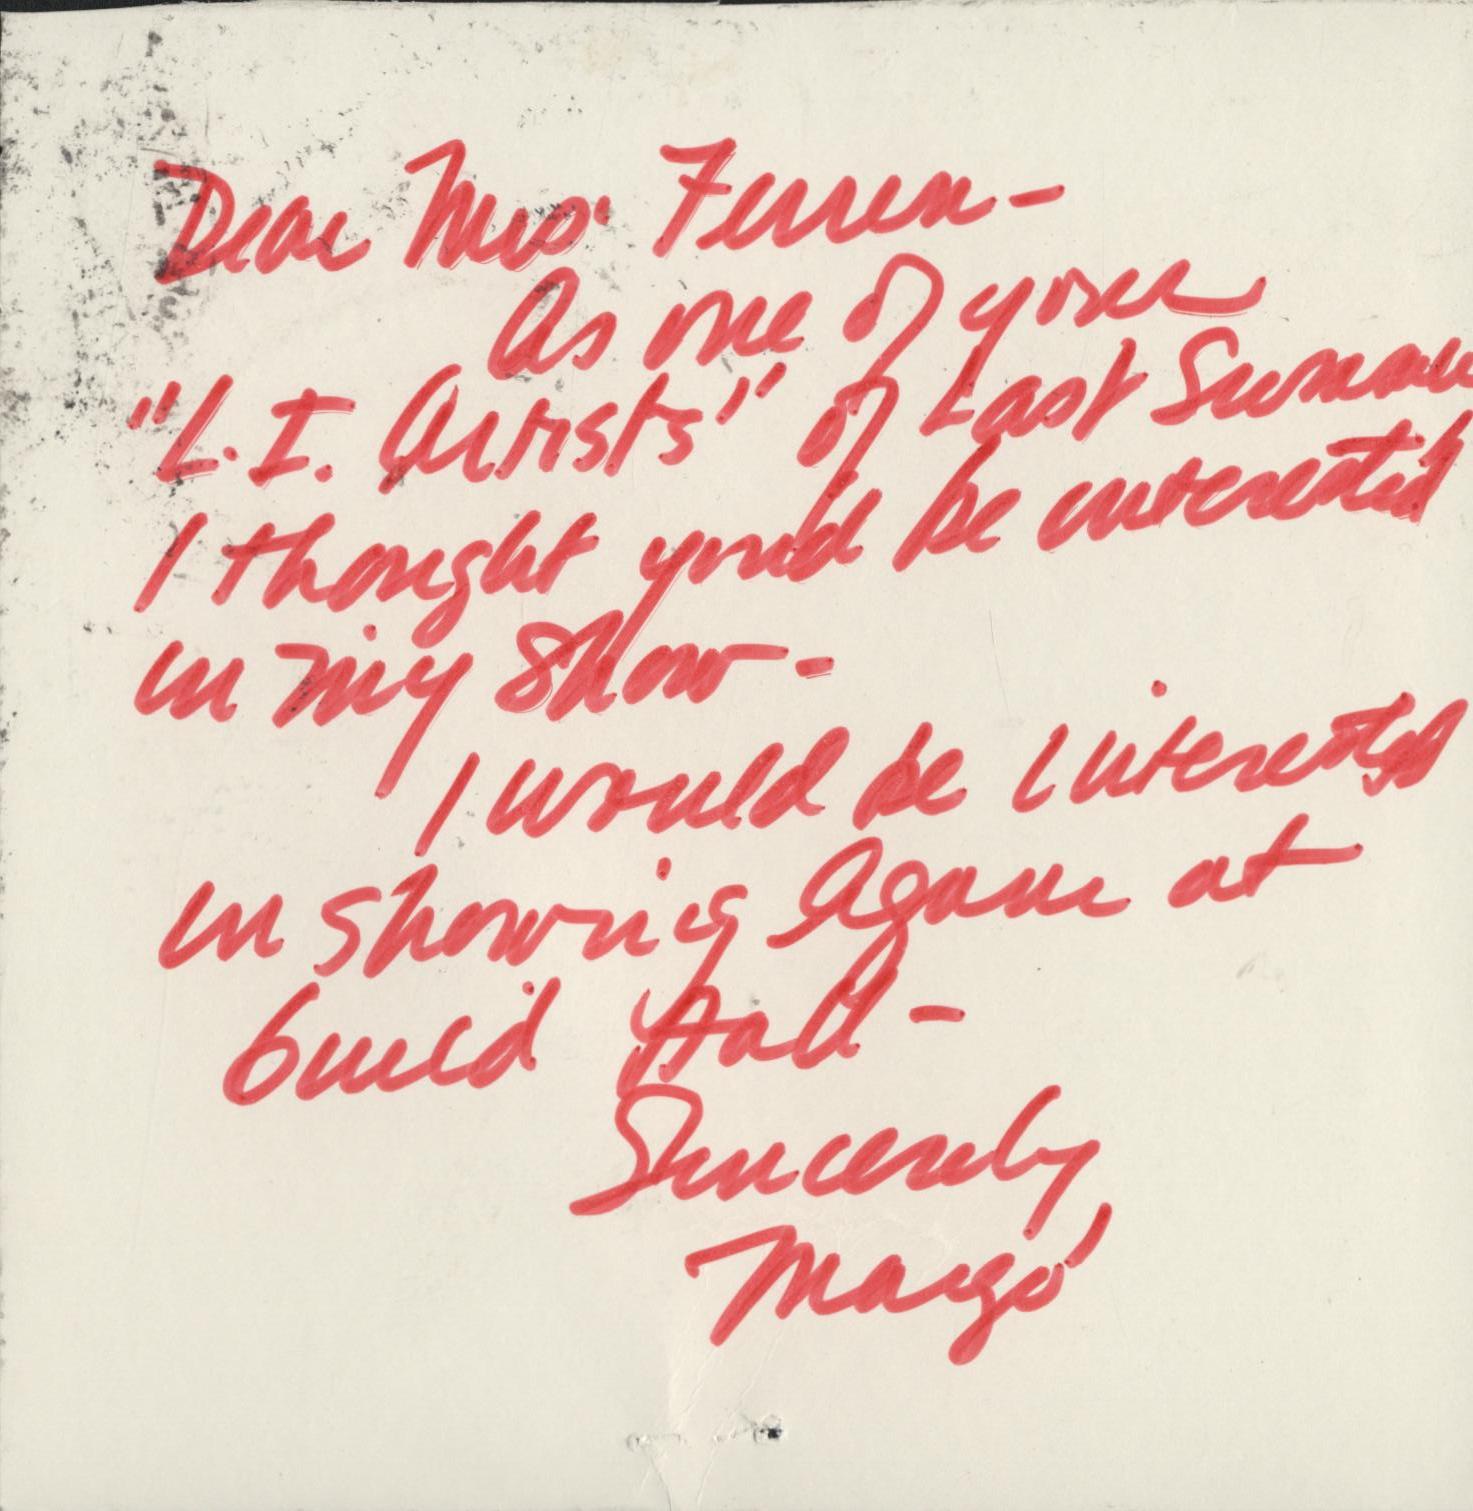 Dear Mrs. Ferren -
As one of your
"L.I. Artists" of Last Summer
I thought you'd be interested
in my show -
I would be interested
in showing Again at
Guild Hall -
Sincerely
Margo